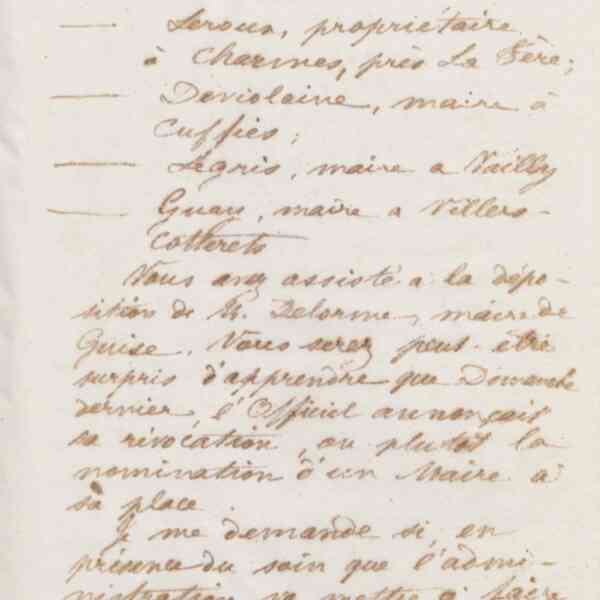 — Leroux, propriétaire
à Charmes, près La Fère;
— Deviolaine, maire à
Cuffies;
— Legris, maire a Vailly
— Guay, maire a Villers-
Cotterets
Vous avez assisté a la dépo-
sition de M. Delorme, maire de
Guise. Vous serez peut-être
surpris d'apprendre que Dimanche
dernier, l'Officiel annonçait
sa révocation, ou plutôt la
nomination d'un Maire a
sa place.
Je me demande si, en
présence du soin que l'admi-
nistration va mettre à faire